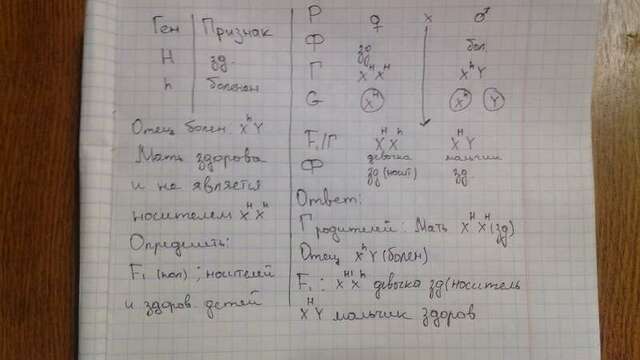 Ген Признак
H зд.
h болен
Отец болен X^h Y
Мать здорова
и не является
носителем X^H X^H
Определить:
F₁ (пол) ; носителей
и здоров. детей
P ♀ x ♂
Ф зд бол.
Г X^H X^H X^h Y
G X^H X^h Y
F₁/Г X^H X^h X^H Y
девочка мальчик
Ф зд (носит) зд
Ответ:
Г родителей: Мать X^H X^H (зд)
Отец X^h Y (болен)
F₁ : X^H X^h девочка зд (носитель
X^H Y мальчик здоров